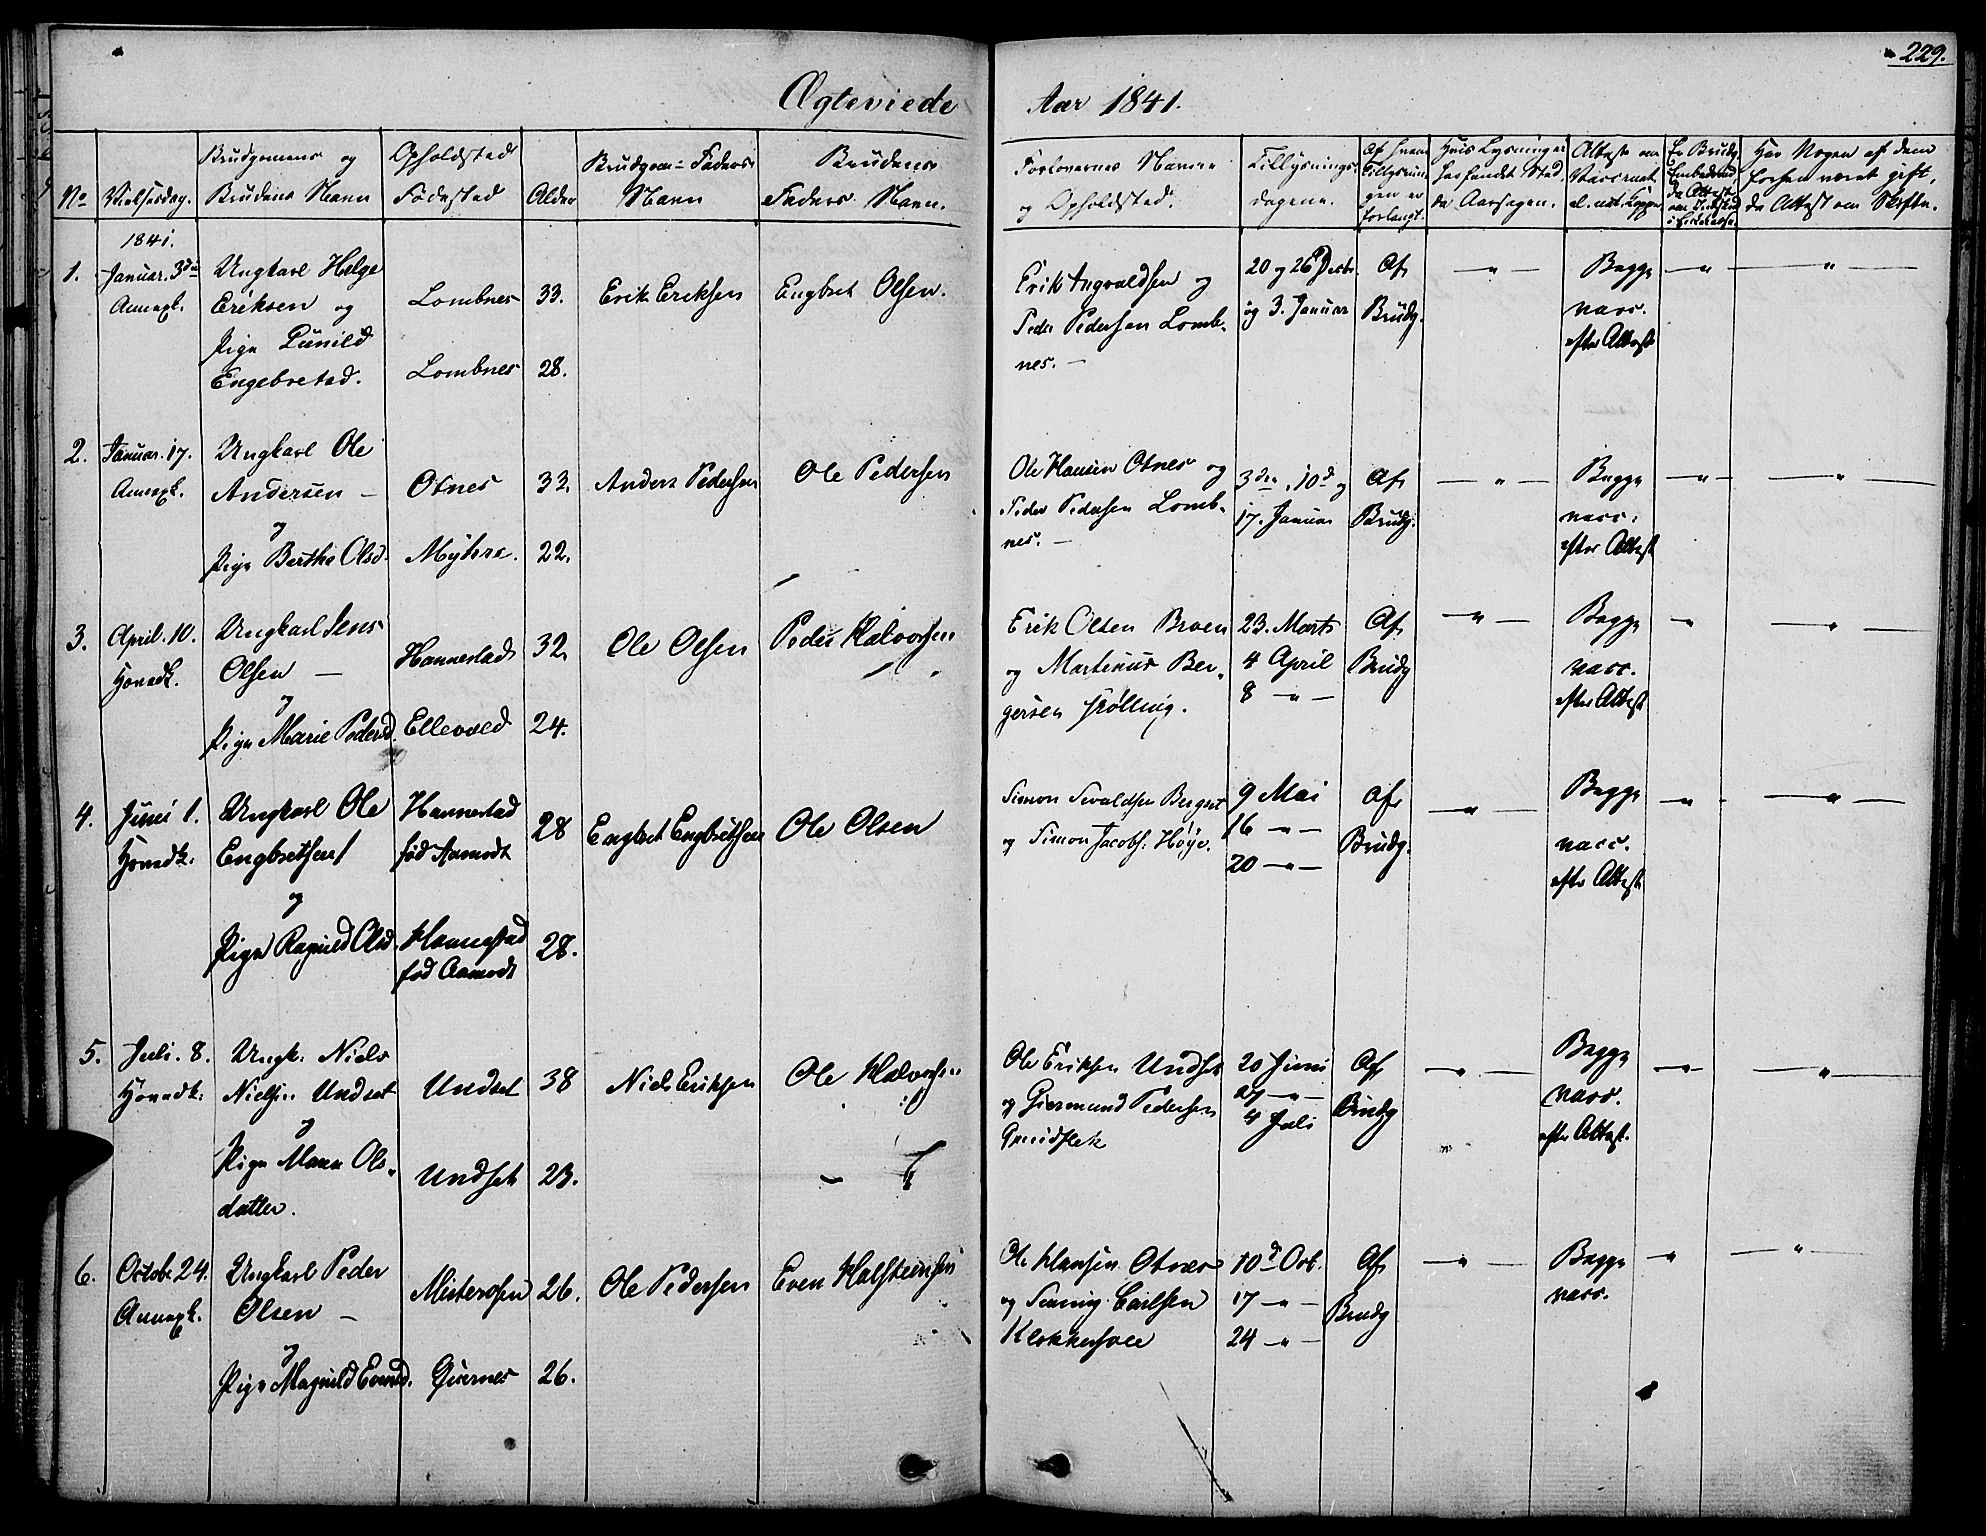 229.
Ægteviede Aar 1841.
No
Vielsesdag.
Brudgomens og
Brudens Navn
Opholdsted
Fødested
Alder
Brudgom- Faders
Navn
Brudens
Faders Navn.
Forlovernes Navne
og Opholdsted.
Tillysnings-
dagene.
Af hvem
Tillysnin-
gen er
forlangt.
Hvis Lysning er
da Aarsagen.
Attest om
Vaccinat.
el. nat. Kopper
Er Brudg.
Har Nogen af dem
forhen været gift,
da Attest om Skifte.
1841.
1.
Januar. 3die
Annexk.
Ungkarl Helge
Eriksen og
Pige Gunild
Engebretsd.
Lombnes
Lombnes
33.
28.
Erik Eriksen
Engbret Olsen.
Erik Ingvaldsen og
Peder Pedersen Lomb-
nes. —
20 og 26 Decbr.
og 3. Januar
Af
Brudg.
— " —
Begge
vacc.
efter Attest
— " —
— " —
2.
Januar. 17.
Annexk.
Ungkarl Ole
Andersen —
og
Pige Berthe Olsd.
Otnes
Myhre.
33.
22.
Anders Pedersen
Ole Pedersen
Ole Hansen Otnes og
Peder Pedersen Lomb-
nes. —
3die, 10d og
17. Januar
Af
Brudg.
— " —
Begge
vacc.
efter Attest
— " —
— " —
3.
April. 10.
Hovedk.
Ungkarl Jens
Olsen —
og
Pige Marie Pedersd.
Hannestad
Ellevold
32.
24.
Ole Olsen
Peder Halvorsen
Erik Olsen Broen
og Martinus Ber-
gersen Frølling.
23. Marts
4 April
8 — " —
Af
Brudg
— " —
Begge
vacc.
efter Attest
— " —
— " —
4.
Juni 1.
Hovedk.
Ungkarl Ole
Engbretsen
og
Pige Ragnild Olsd.
Hannestad
fød Aamodt
Hannestad
fød Aamodt
28
28.
Engbret Engbretsen
Ole Olsen
Simon Sivaldsen Bergset
og Simon Jacobs. Høye.
9 Mai
16 — " —
20 — " —
Af
Brudg.
— " —
Begge
vacc.
efter Attest
— " —
— " —
5.
Juli. 8.
Hovedk.
Ungk. Niels
Nielsen Undset
og
Pige Maren Ols-
datter.
Undset
Undset
38
23.
Niels Eriksen
Ole Halvorsen
Ole Eriksen Undset
og Giermund Pedersen
20 Juni
27 — " —
4 Juli
Af
Brudg
— " —
Begge
vacc.
efter Attest.
— " —
— " —
6.
Octob. 24.
Annexk.
Ungkarl Peder
Olsen —
og
Pige Magnild Evensd.
Misterosen
Giernes
26.
26.
Ole Pedersen
Even Halsteinsen
Ole Hansen Otnes
og Carlsen
10d Oct.
17 — " —
24 — " —
Af
Brudg
— " —
Begge
vacc.
"
— " —